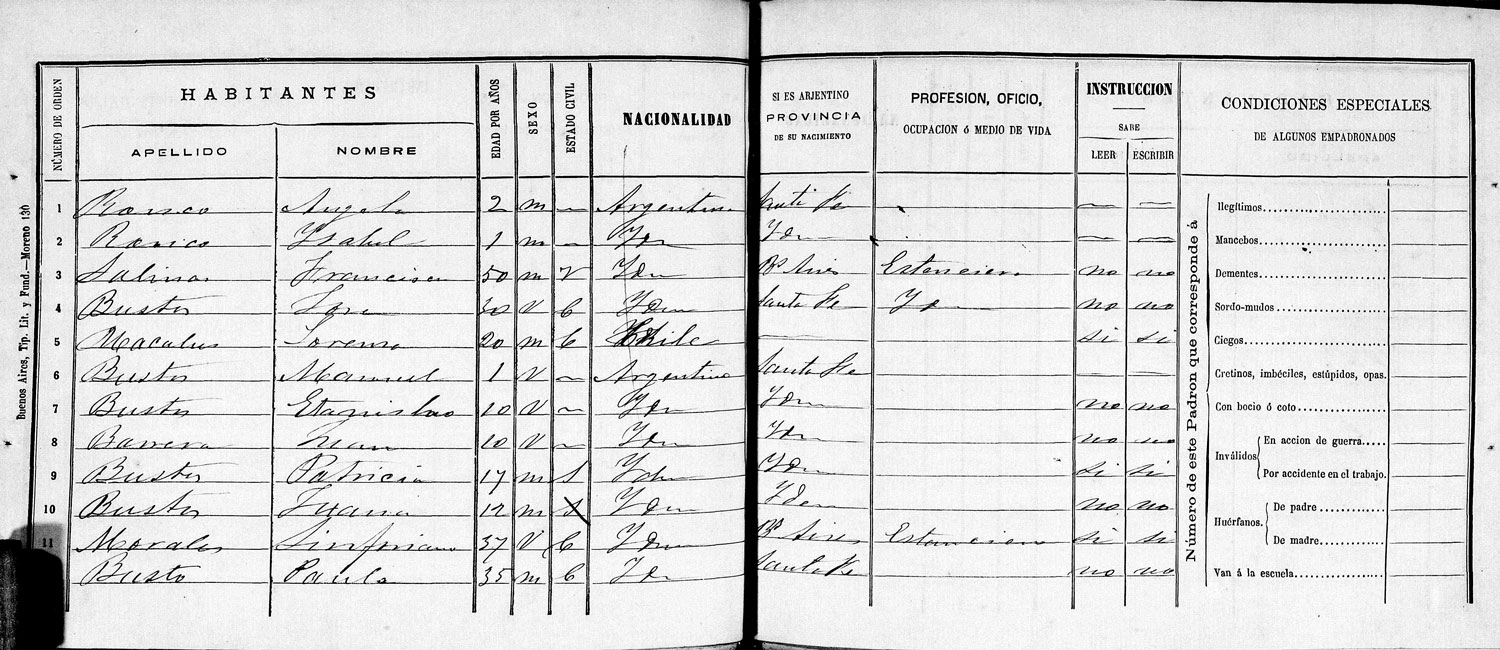 HABITANTES
NÚMERO DE ORDEN
APELLIDO
NOMBRE
EDAD POR AÑOS
SEXO
ESTADO CIVIL
NACIONALIDAD
SI ES ARJENTINO
PROVINCIA
DE SU NACIMIENTO
PROFESION, OFICIO,
OCUPACION ó MEDIO DE VIDA
INSTRUCCION
SABE
LEER ESCRIBIR
CONDICIONES ESPECIALES
DE ALGUNOS EMPADRONADOS
Buenos Aires, Tip. Lit. y Fund.—Moreno 130
1 Angela 2 m — Argentina — —
2 Isabel 1 m — Idm Idm — —
3 Salinas Francisca 50 m V Idm Bs Aires Estanciera no no
4 Bustos Jose 30 V C Idem Santa Fe Id no no
5 Lorensa 20 m C Chile — si si
6 Bustos Manuel 1 V — Argentino Santa Fe — —
7 Bustos Etanislao 10 V — Idm Idm no no
8 Barrera Juan 10 V — Idm Idm no no
9 Bustos Patricia 17 m S Idm Idm si si
10 Bustos Juana 12 m S Idem Idem no no
11 Morales Sinforiano 37 V C Idm Bs Aires Estanciero si si
Busto Paula 35 m C Id Santa Fe no no
Número de este Padron que corresponde á
Ilegítimos
Mancebos
Dementes
Sordo-mudos
Ciegos
Cretinos, imbéciles, estúpidos, opas.
Con bocio ó coto
Inválidos
En accion de guerra
Por accidente en el trabajo.
Huérfanos.
De padre
De madre
Van á la escuela